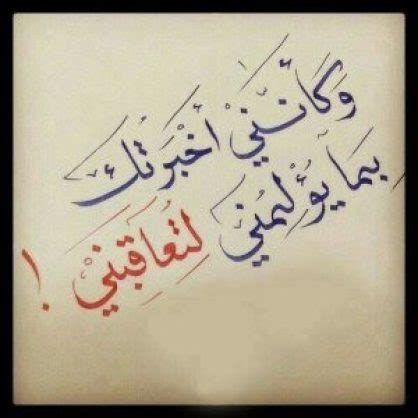 وَكَأنَّنِيْ أخْبَرتُكَ
بِمَا يُؤْلِمُنِيْ لِتُعَاقِبَنِيْ !